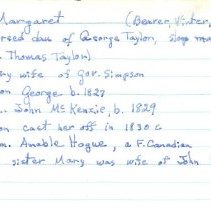 Margaret (Beaver, Vinter,
rsed dau of George Taylor, sloop ma
Thomas Taylor)
ry wife of Gov. Simpson
on George b. 1828
.. John McKenzie, b. 1829
on cast her off in 1830
m. Amable Hogue, a F. Canadian
sister Mary was wife of John